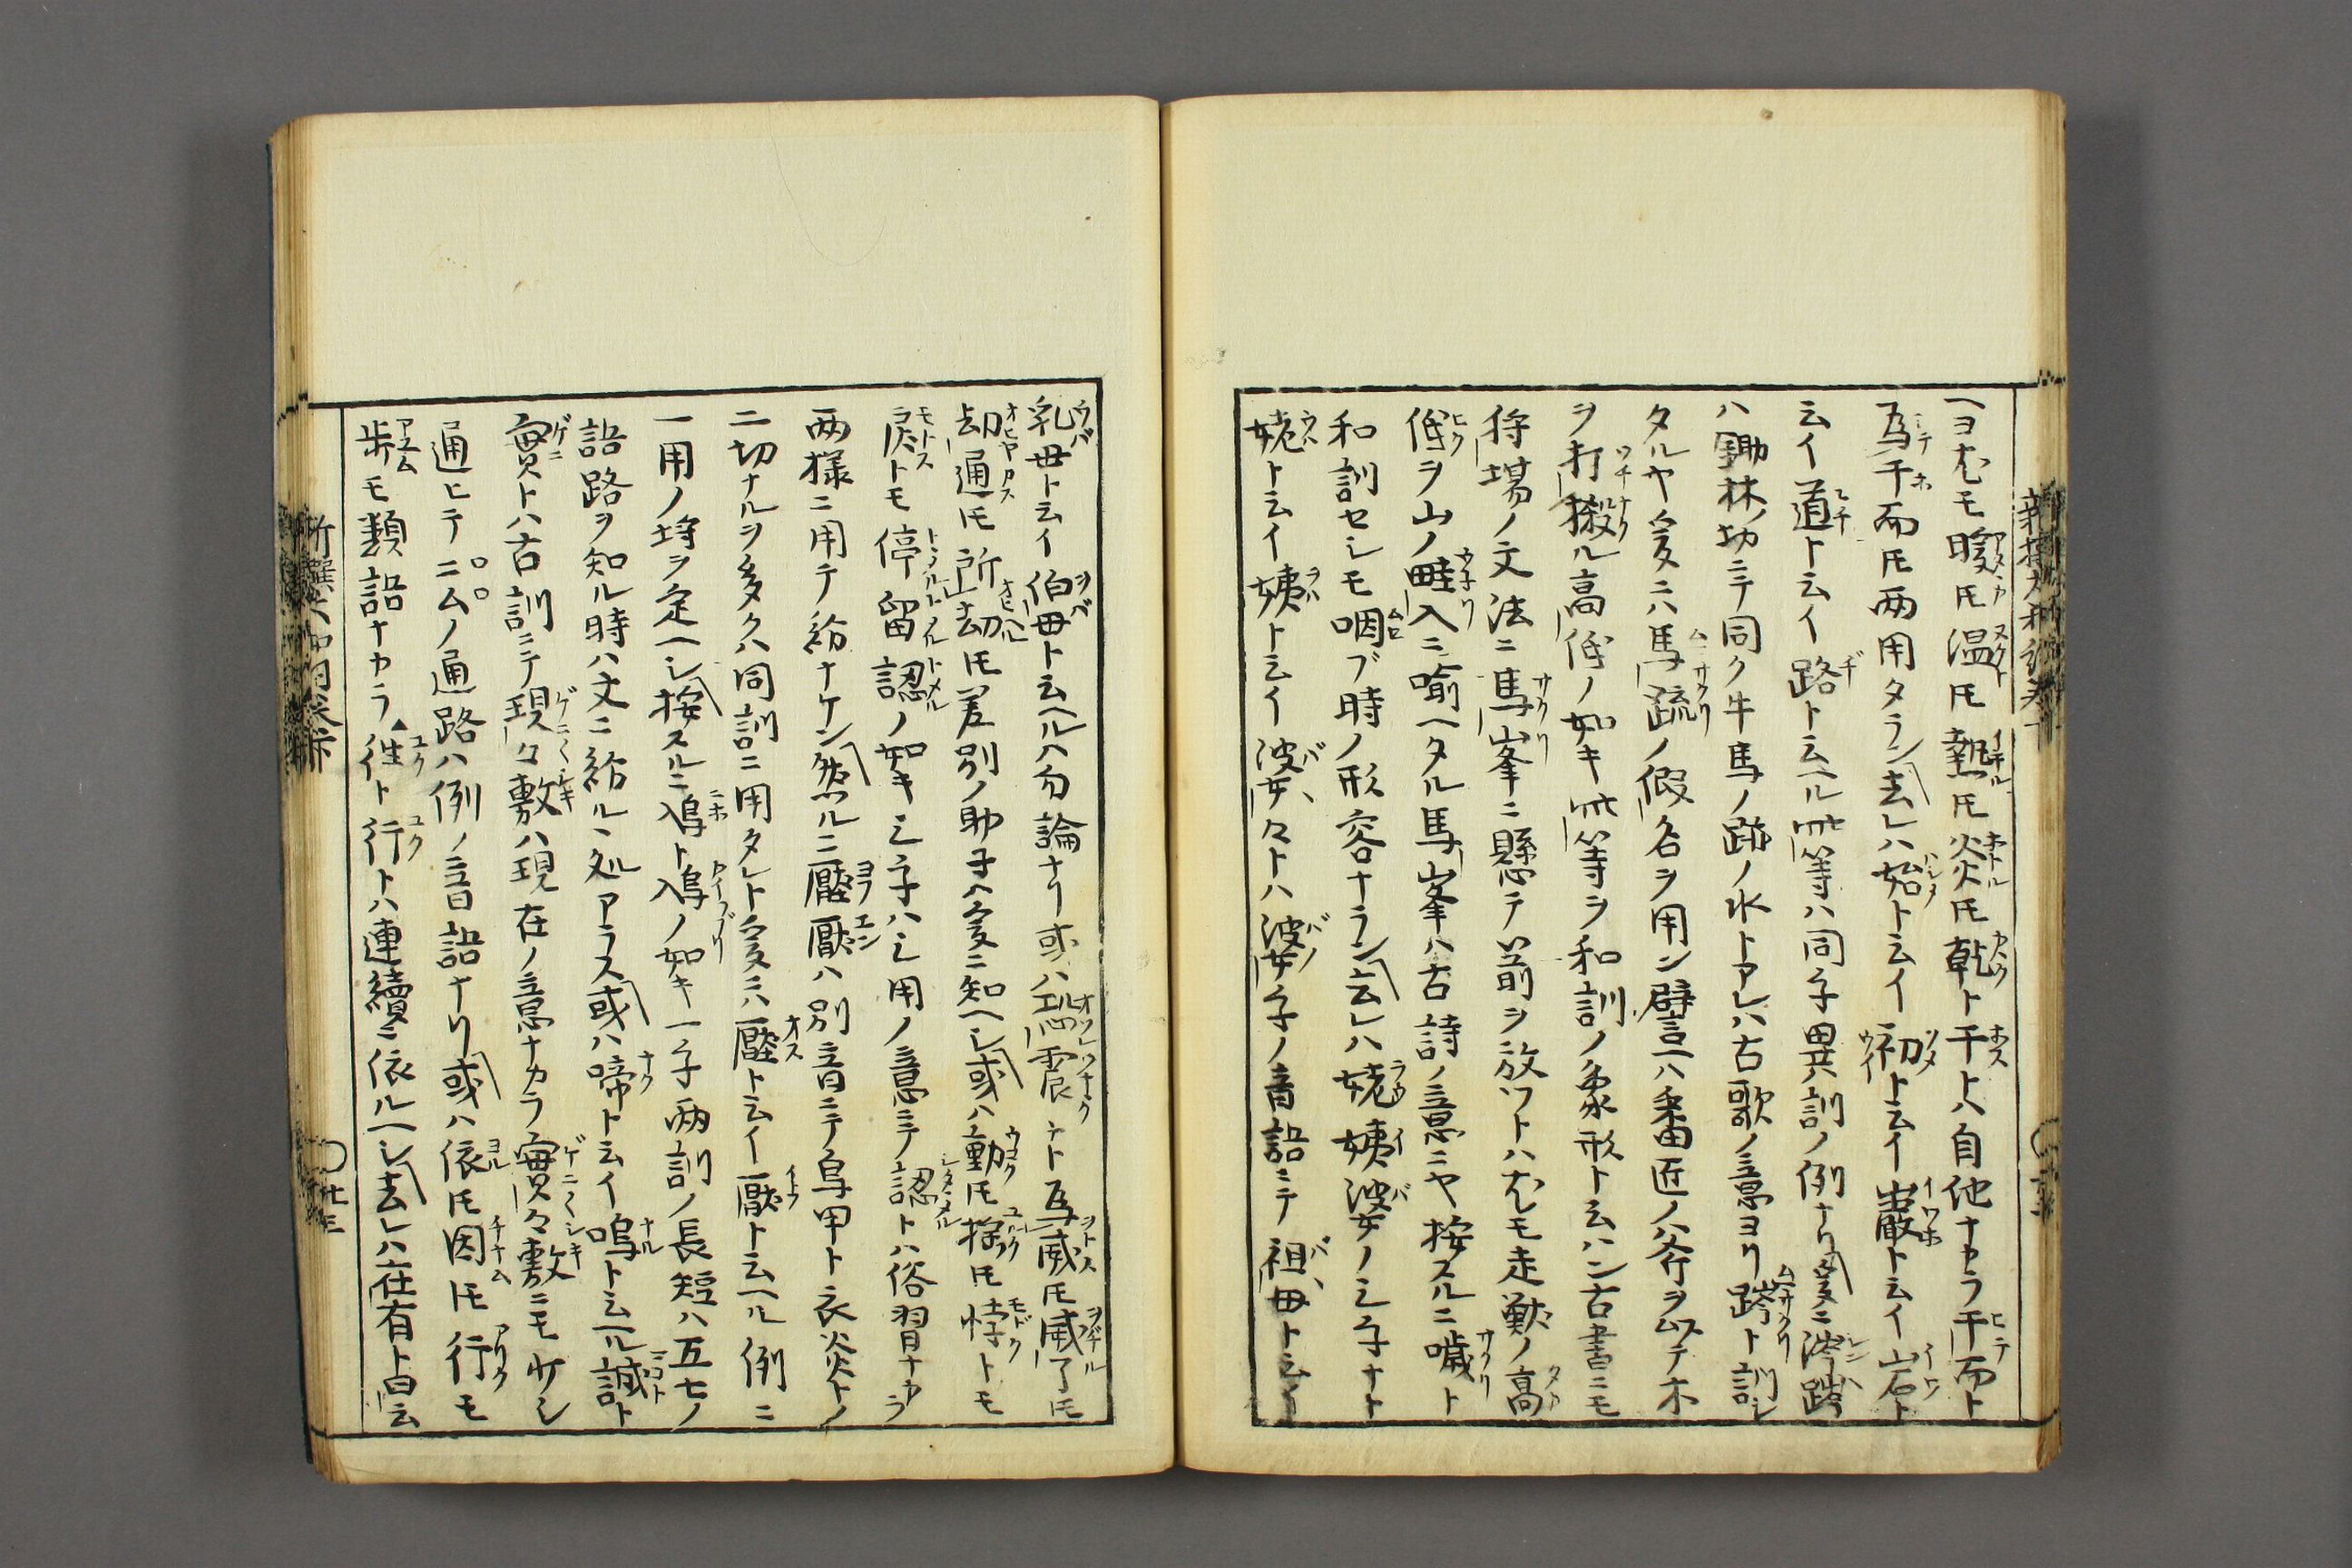 ヘヨむモ暖モ温モ熱モ炎モ乾ト干トハ自他ナカラ干而ト
為干而モ両用タラン去レハ始ト云イ初ト云イ巌ト云イ岩ト
云イ道ト云イ路ト云ヘル此等ハ同字異訓ノ例ナリ爰ニ
ハ鋤林切ニテ同ク牛馬ノ跡ノ水トアレハ古歌ノ意ヨリ跨ト訓シ
タルヤ爰ニハ馬疏ノ仮名ヲ用ン譬ヘハ番匠ノ斧ヲ以テ木
ヲ打ル高低ノ如キ此等ヲ和訓ノ象形ト云ハン古書ニモ
狩場ノ文法ニ馬峯ニ懸テ箭ヲ放ツトハむモ走獣ノ高
低ヲ山ノ畦入ニ喩ヘタル馬峯ハ古詩ノ意ニヤ按スルニ噦ト
和訓セシモ咽ブ時ノ形容ナラン去レハ姥姨婆ノ三字ナト
姥ト云イ姨ト云イ婆々トハ婆字ノ音語ニテ祖母ト云イ
乳母ト云イ伯母ト云ヘルハ勿論ナリ或ハ恐震ナト為威モ威了モ
却通モ所去却モ差別ノ助字ヘ爰ニ知ヘシ或ハ動モ揺モ悖トモ
戻トモ停留認ノ如キ三字ハ三用ノ意ニテ認トハ俗習ナカラ
両様ニ用テ紛ナケン然ルニ壓厭ハ別音ニテ烏甲ト衣炎トノ
二切ナルヲ多クハ同訓ニ用タレト爰ニハ壓ト云イ厭ト云ヘル例ニ
一用ノ埒ヲ定ヘシ按スルニ鳰ト鳰ノ如キ一字両訓ノ長短ハ五七ノ
語路ヲ知ル時ハ文ニ紛ルヽ処アラス或ハ啼ト云イ鳴ト云ヘル誠ト
實トハ古訓ニテ現々敷ハ現在ノ意ナカラ實々敷ニモ
通ヒテニムノ通路ハ例ノ音語ナリ或ハ依モ因モ行モ
歩モ類語ナカラ往ト行トハ連續ニ依ルヘシ去レハ在有ト曰云